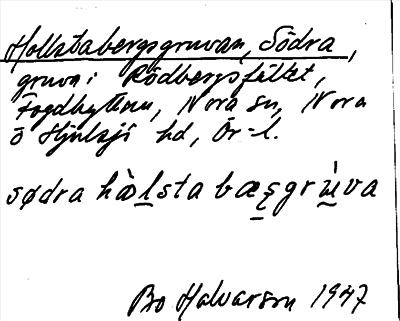 Hollstabergsgruvan, Södra,
gruva i Rödbergsfältet,
Fogdhyttan, Nora sn, Nora
o Hjulsjö hd, Ör-l.
sødra hòlsta bæsgrùva
Bo Halvarson 1947